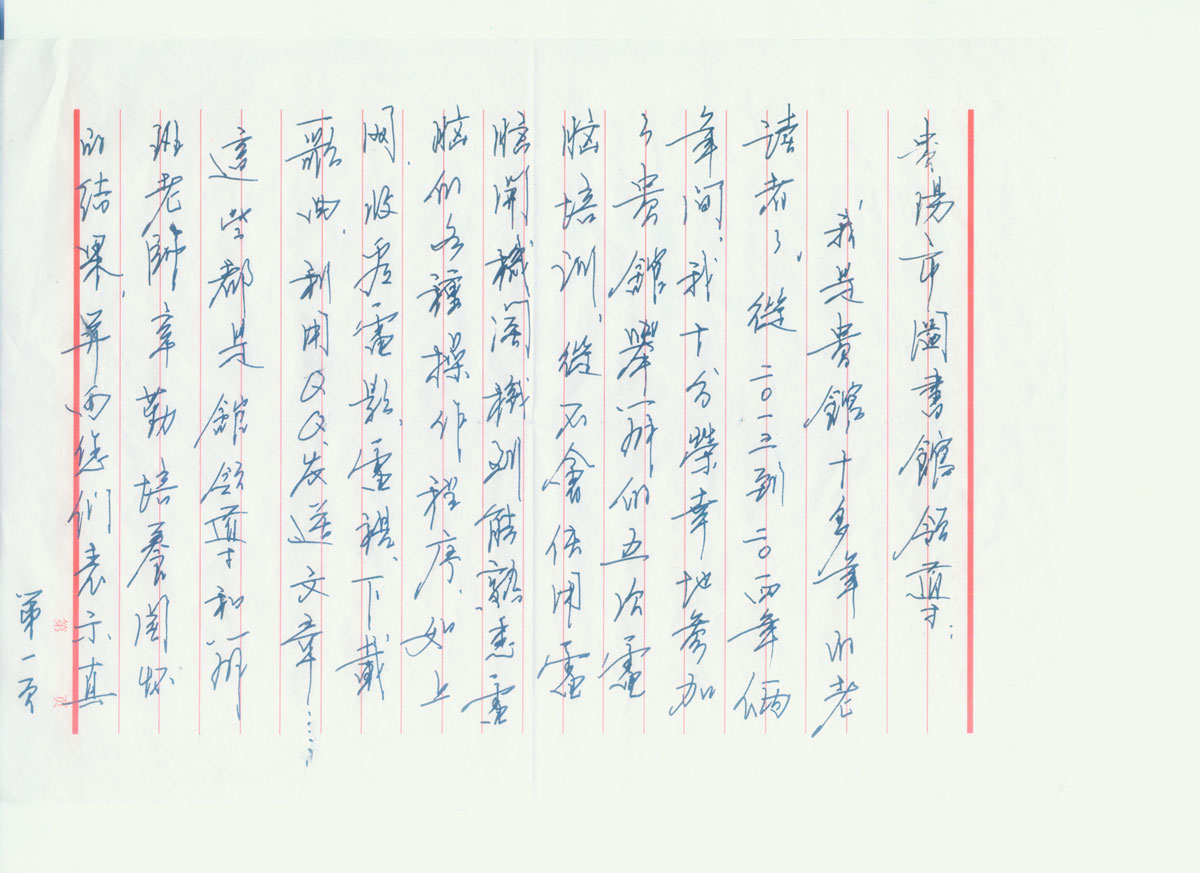 貴陽市圖書館領導：
我是貴館十多年的老
讀者了，從二〇一三到二〇一四年倆
年間，我十分榮幸地參加
了貴館舉辦的五次電
腦培訓，從不會使用電
腦開機關機到能熟悉電
腦的各種操作程序，如上
網，收看電影、電視、下載
歌曲，利用QQ发送文章……，
這些都是館領導和辦
班老師辛勤培養関怀
的结果，単向您們表示真
第一页
第 页